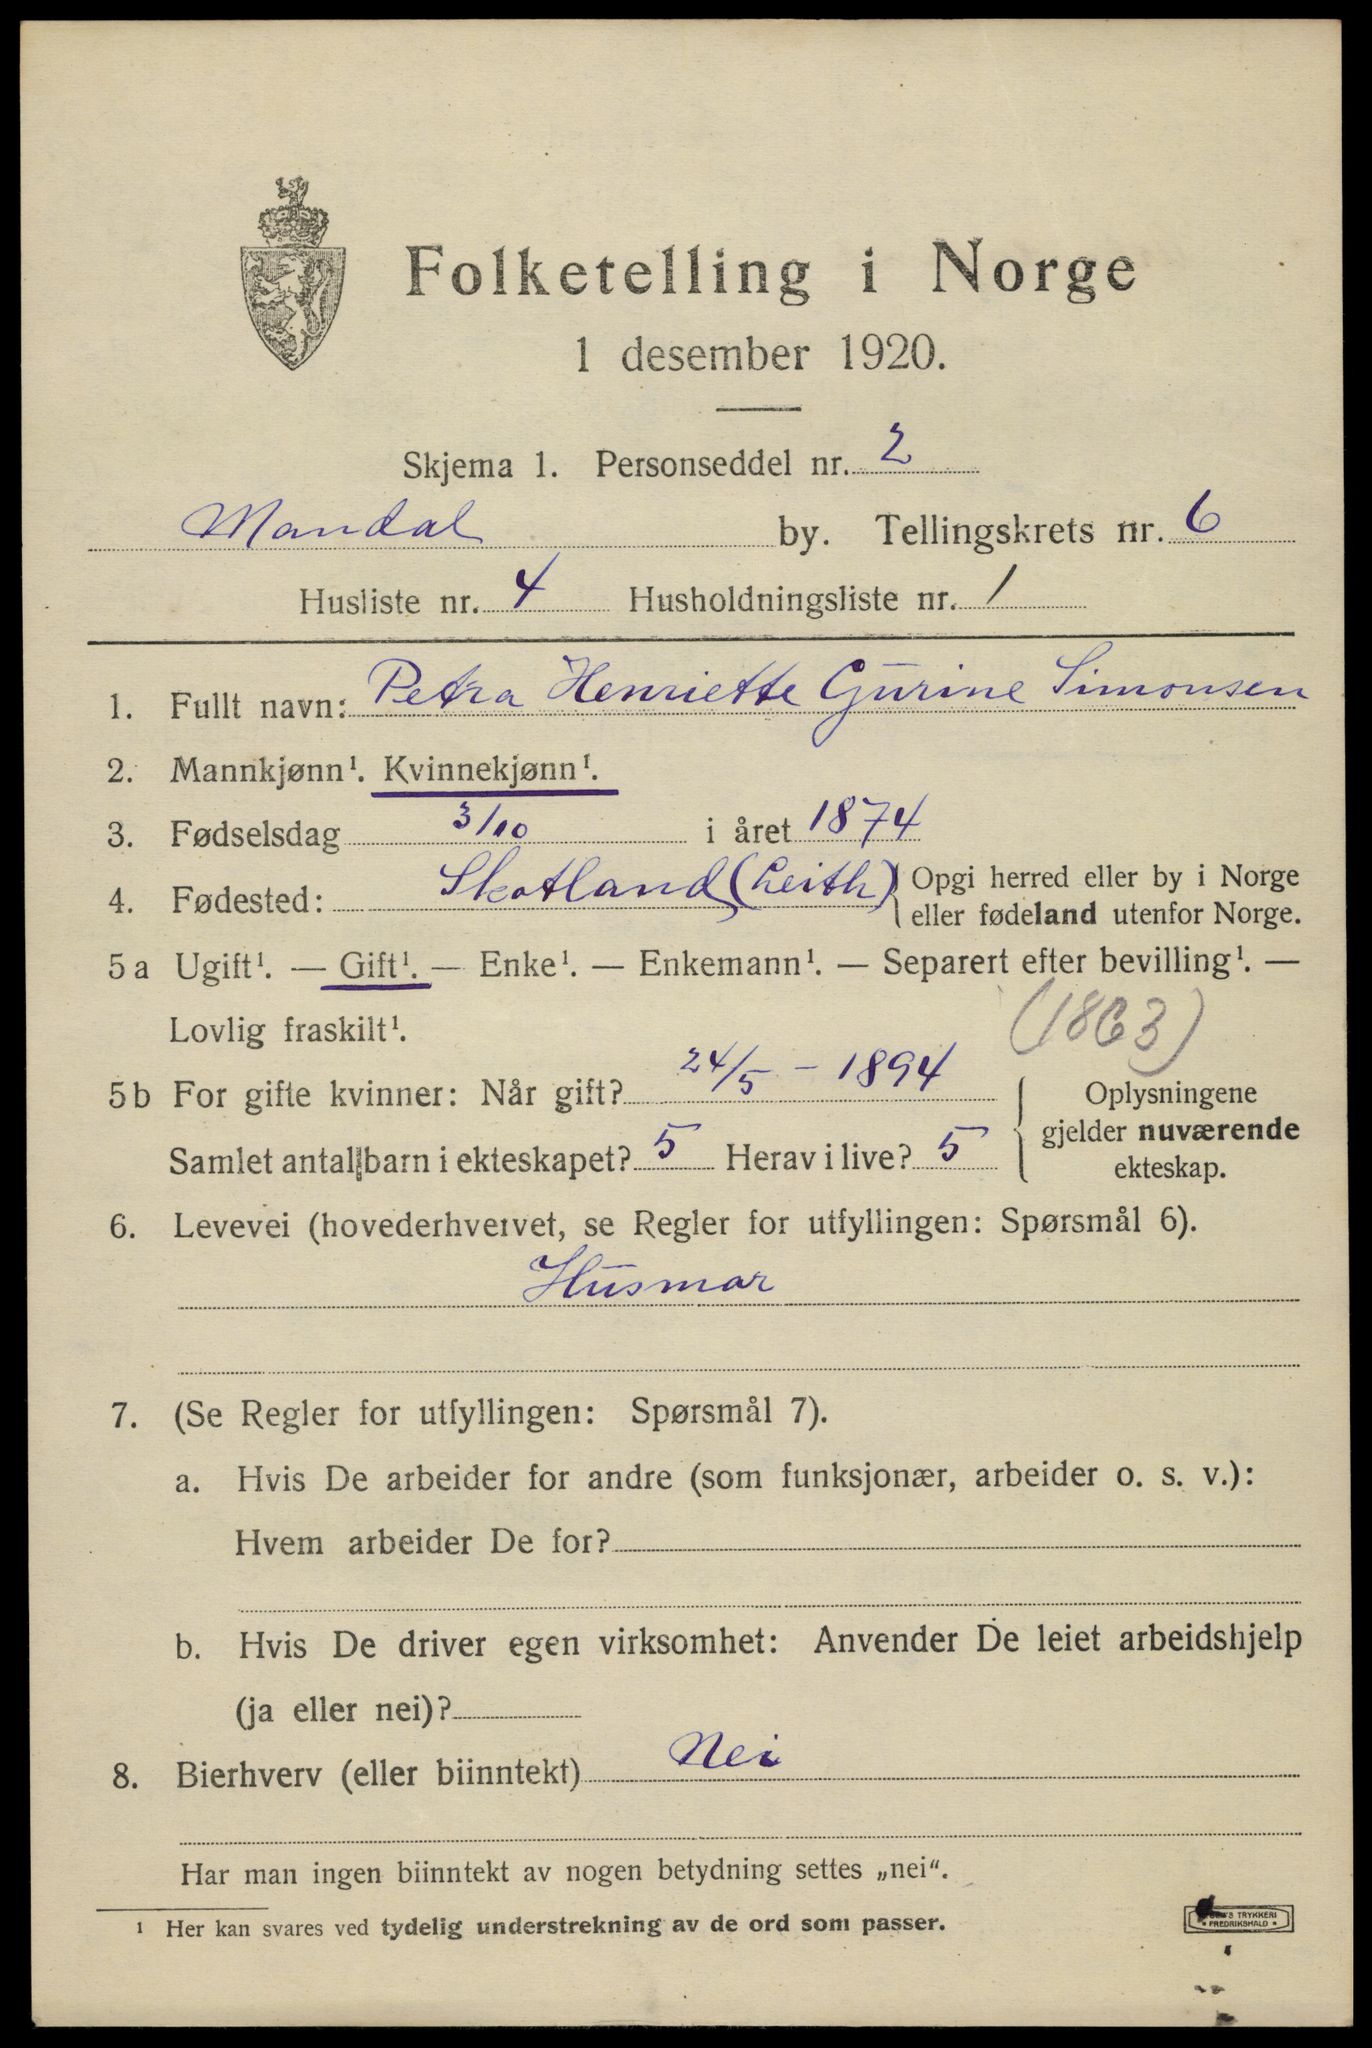 Folketelling i Norge
1 desember 1920.
Skjema 1. Personseddel nr. 2
Mandal by. Tellingskrets nr. 6
Husliste nr. 4 Husholdningsliste nr. 1
1. Fullt navn: Petra Henriette Gurine Simonsen
2. Mannkjønn¹. Kvinnekjønn¹.
3. Fødselsdag 3/10 i året 1874
4. Fødested: Skotland (Leith) Opgi herred eller by i Norge
eller fødeland utenfor Norge.
5 a Ugift¹. — Gift¹. — Enke¹. — Enkemann¹. — Separert efter bevilling¹. —
Lovlig fraskilt¹.
(1863)
5 b For gifte kvinner: Når gift? 24/5 - 1894
Samlet antal barn i ekteskapet? 5 Herav i live? 5
Oplysningene
gjelder nuværende
ekteskap.
6. Levevei (hovederhvervet, se Regler for utfyllingen: Spørsmål 6).
Husmor
7. (Se Regler for utfyllingen: Spørsmål 7).
a. Hvis De arbeider for andre (som funksjonær, arbeider o. s. v.):
Hvem arbeider De for?
b. Hvis De driver egen virksomhet: Anvender De leiet arbeidshjelp
(ja eller nei)?
8. Bierhverv (eller biinntekt) Nei
Har man ingen biinntekt av nogen betydning settes „nei“.
¹ Her kan svares ved tydelig understrekning av de ord som passer.
TRYKKERI
• FREDRIKSHALD •